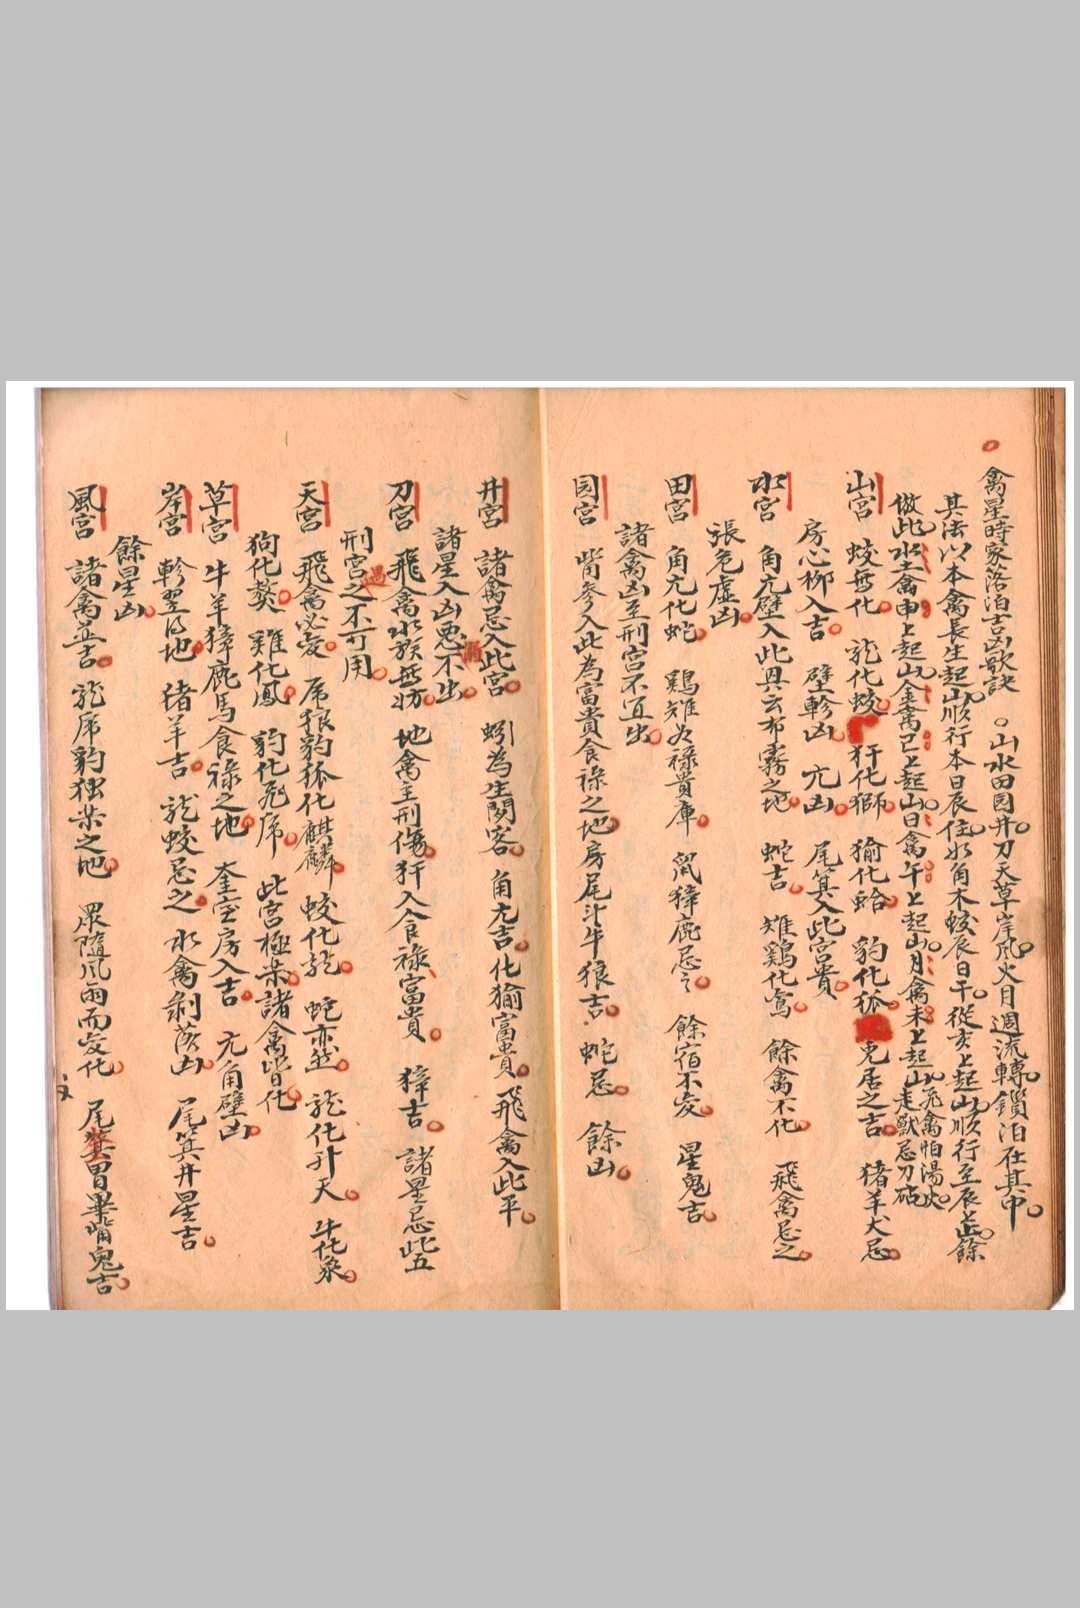 禽星時家落泊吉凶歌訣　○山水田园井刀天草岸風火月週流轉鎖泊在其中
其法以本禽長生起山順行本日辰住如角木蛟辰日干從亥上起山順行至辰上止餘
倣此水土禽申上起山金禽巳上起山日禽午上起山月禽未上起山飛禽怕湯火走獸忌刀砧
山宮　蛟無化　龍化蛟　犴化獅　㺄化蛤　豹化狐　兎居之吉　猪羊犬忌
房心柳入吉　壁軫凶　亢凶　尾箕入此宮貴
水宮　角亢壁入此興云布霧之地　蛇吉　雉鷄化鴛　餘禽不化　飛禽忌之
張危虛凶
田宮　角亢化蛇　鷄雉為祿貴庫　鼠獐鹿忌之　餘宿不変　星鬼吉
諸禽凶至刑宮不宜出
园宮　觜參入此為富貴食祿之地房尾斗牛狼吉　蛇忌　餘凶
井宮　諸禽忌入此宮　蚓為生関客　角亢吉　化㺄富貴　飛禽入此平
諸星入凶悪不出
刀宮　飛禽水族無妨　地禽主刑傷犴入食祿富貴　獐吉　諸星忌此五
刑宮之遇不可用
天宮　飛禽必変　虎狼豹狐化麒麟　蛟化龍　蛇亦然　龍化升天　牛化象
狗化獒　雞化鳳　豹化飛虎　此宮極柒諸禽皆化
草宮　牛羊獐鹿馬食祿之地　奎室房入吉　亢角壁凶
岸宮　軫翌得地　猪羊吉　龍蛟忌之　水禽剝落凶　尾箕井星吉
餘星凶
風宮　諸禽並吉　龍虎豹独柒之地　眾隨風雨而変化　尾箕胃畢觜鬼吉